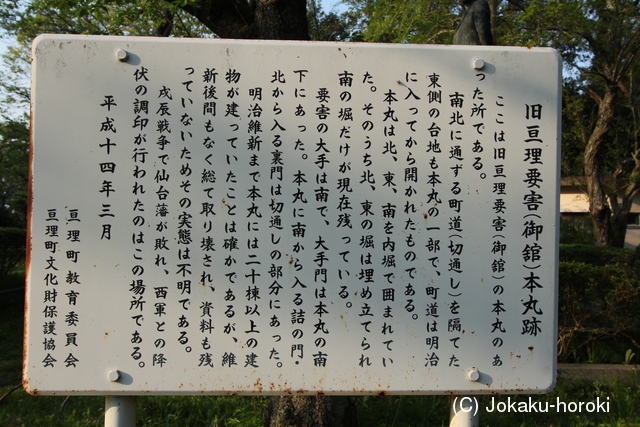 旧亘理要害(御舘)本丸跡
ここは旧亘理要害(御舘)の本丸のあ
った所である。
南北に通ずる町道(切通し)を隔てた
東側の台地も本丸の一部で、町道は明治
に入ってから開かれたものである。
本丸は北、東、南を内堀で囲まれてい
た。そのうち北、東の堀は埋め立てられ
南の堀だけが現在残っている。
要害の大手は南で、大手門は本丸の南
下にあった。本丸に南から入る詰の門・
北から入る裏門は切通しの部分にあった。
明治維新まで本丸には二十棟以上の建
物が建っていたことは確かであるが、維
新後間もなく総て取り壊され、資料も残
っていないためその実態は不明である。
戊辰戦争で仙台藩が敗れ、西軍との降
伏の調印が行われたのはこの場所である。
平成十四年三月
亘理町教育委員会
亘理町文化財保護協会
(C) Jokaku-horoki